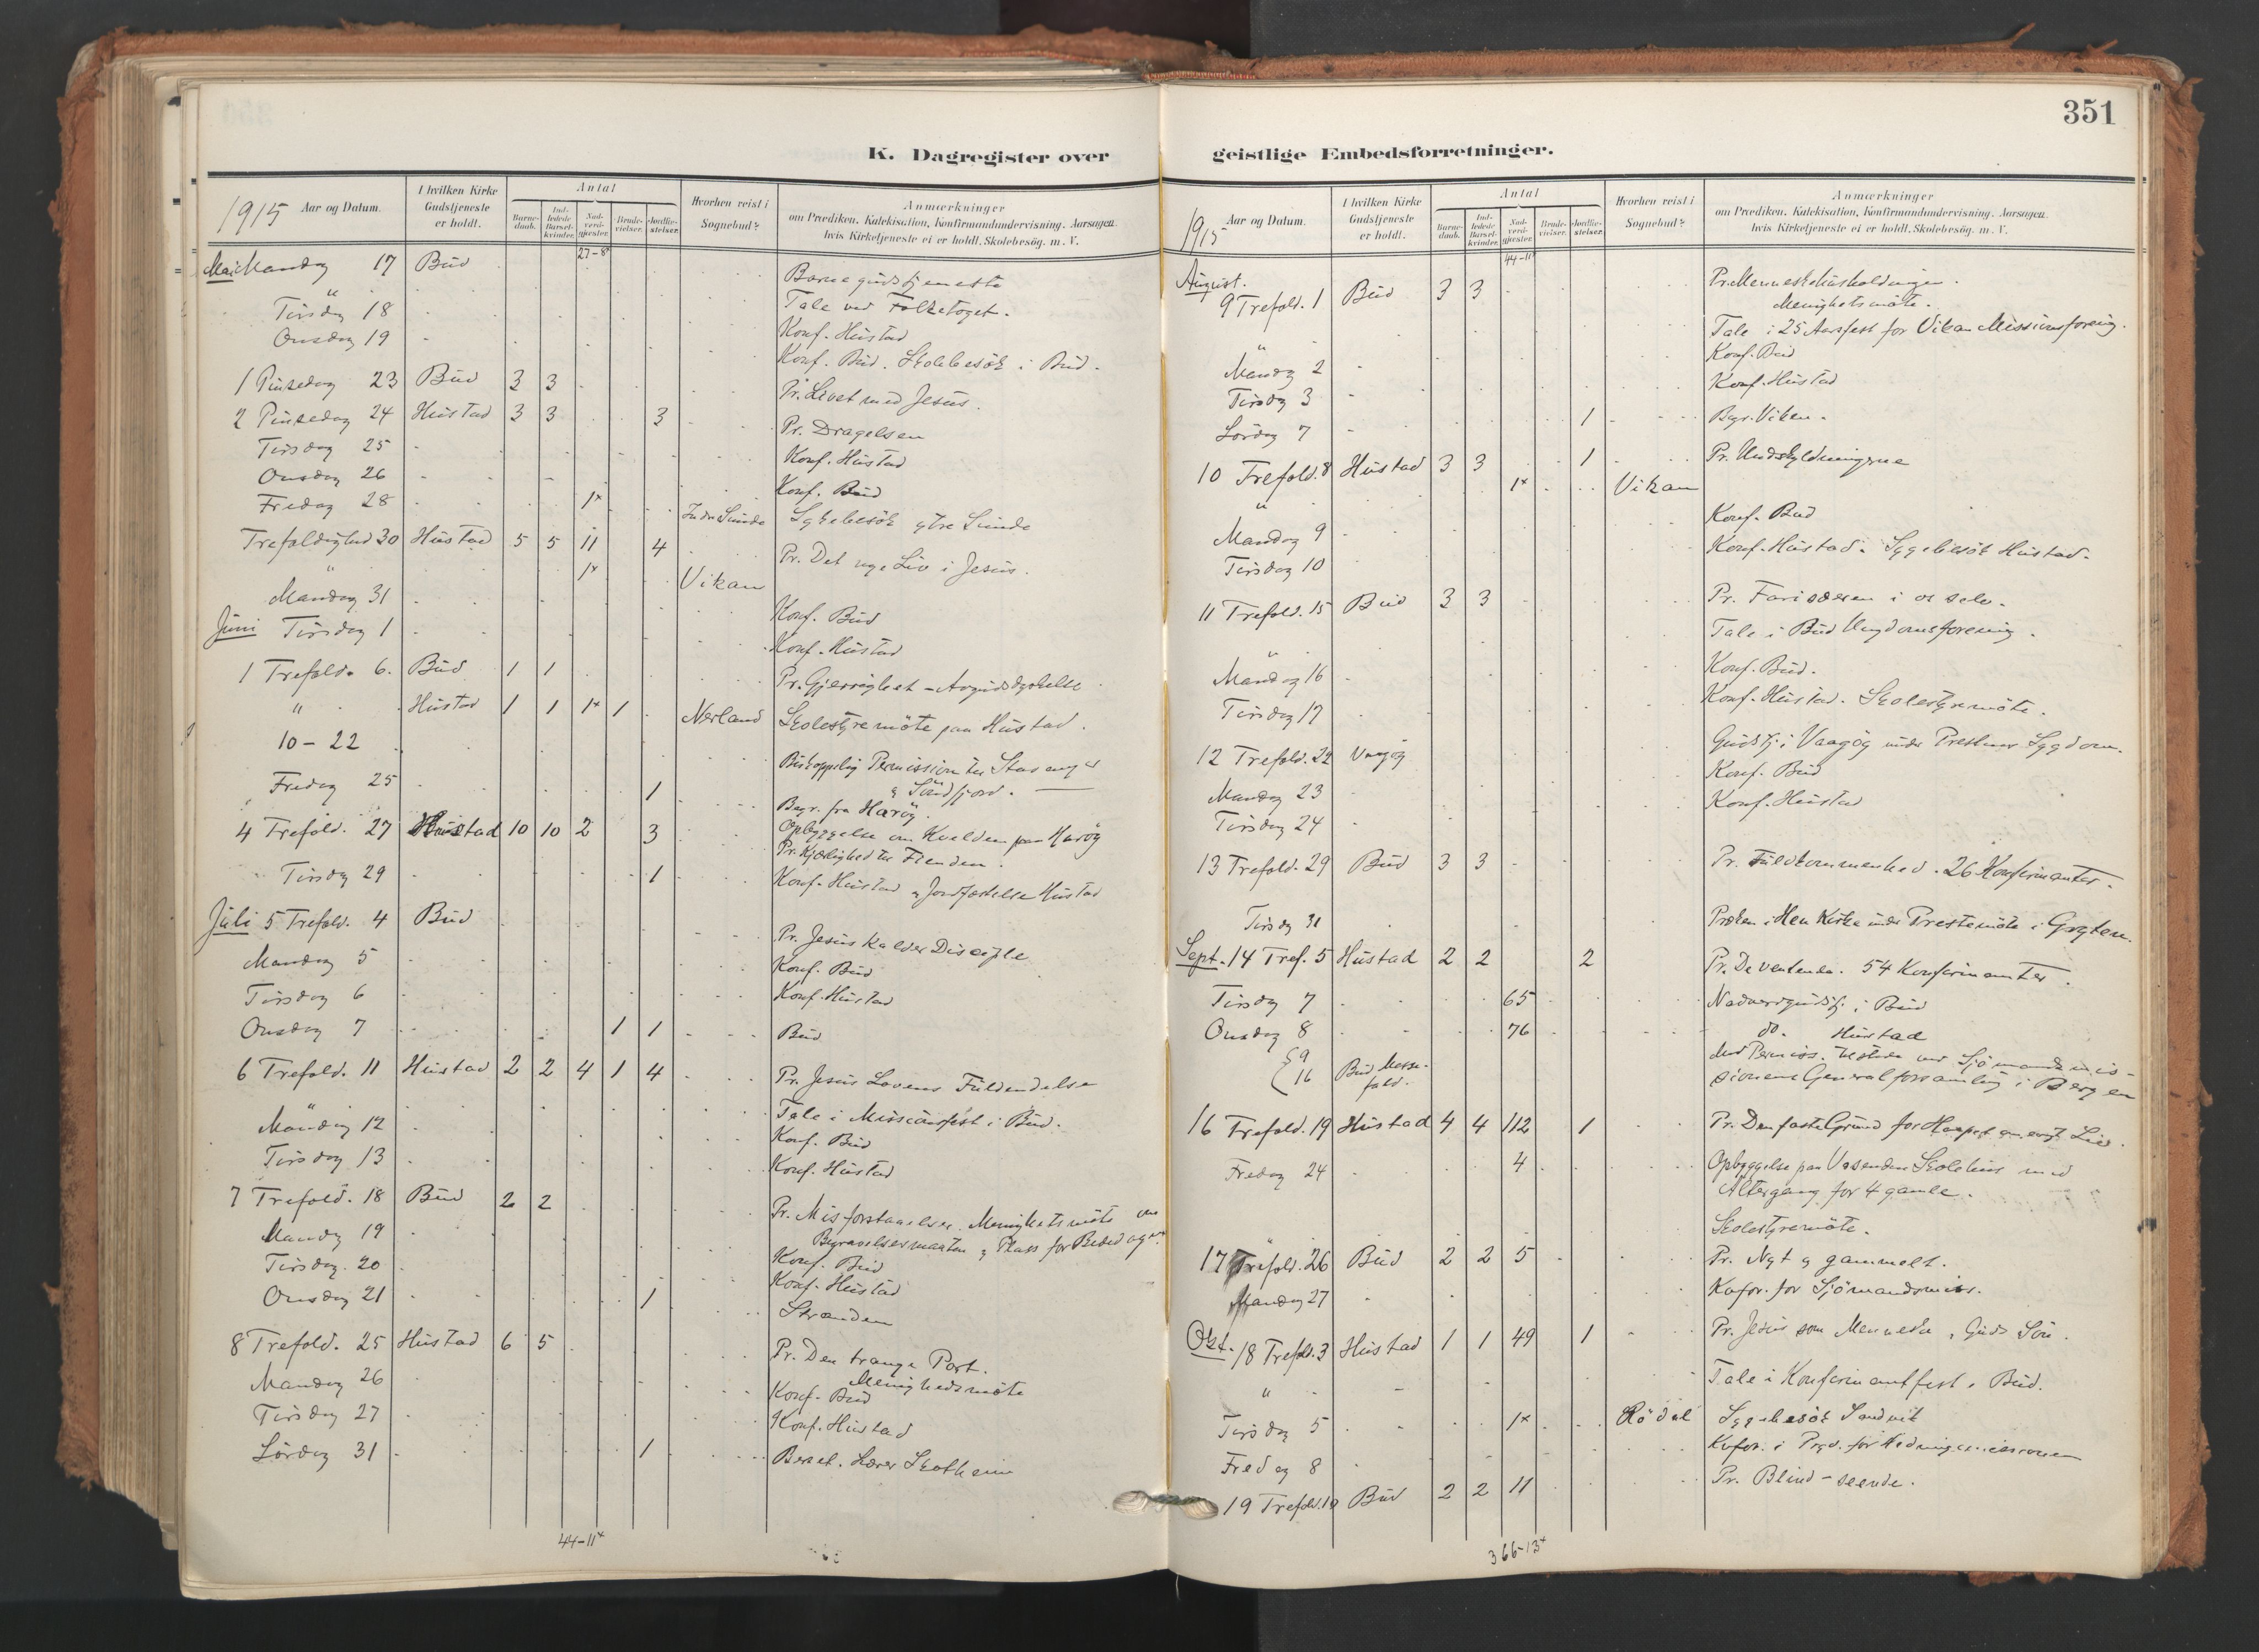 351
K. Dagregister over geistlige Embedsforretninger.
1915 Aar og Datum. I hvilken Kirke Gudstjeneste er holdt. Antal Barnedaab. Indledede Barselkvinder. Nadverdgjæster. Brudevielser. Jordfæstelser. Hvorhen reist i Sognebud? Anmærkninger om Prædiken, Katekisation, Konfirmandundervisning, Aarsagen hvis Kirketjeneste ei er holdt, Skolebesøg, m. V.
27-8x
Mai Mandag 17 Bud Barnegudstjeneste
" Tale ved Folketoget.
Tirsdag 18 Konf. Hustad
Onsdag 19 Konf. Bud. Skolebesök i Bud.
1 Pinsedag 23 Bud 3 3 Pr. Livet med Jesus.
2 Pinsedag 24 Hustad 3 3 3 Pr. Dragelsen
Tirsdag 25 Konf. Hustad
Onsdag 26 Konf. Bud
Fredag 28 1x Indre Sunde Sykebesök ytre Sunde
Trefoldighed 30 Hustad 5 5 11 4 Pr. Det nye Liv i Jesus.
" 1x Vikan
Mandag 31 Konf. Bud
Juni Tirsdag 1 Konf. Hustad
1 Trefold. 6. Bud 1 1 Pr. Gjerrighet - Avgudsdyrkelse
" Hustad 1 1 1x 1 Nerland Skolestyremöte paa Hustad.
10-22 Biskoppelig Permission til Stavanger & Söndfjord.
Fredag 25 1 Begr. fra Haröy.
Opbyggelse om Kvelden paa Haröy
4 Trefold. 27 Hustad 10 10 2 3 Pr. Kjærlighed til Fienden.
Tirsdag 29 1 Konf. Hustad & Jordfæstelse Hustad
Juli 5 Trefold. 4 Bud Pr. Jesus kalder Disciple
Mandag 5 Konf. Bud
Tirsdag 6 Konf. Hustad
Onsdag 7 1 1 Bud
6 Trefold. 11 Hustad 2 2 4 1 4 Pr. Jesus Lovens Fuldendelse
" Tale i Missionsfest i Bud.
Mandag 12 Konf. Bud
Tirsdag 13 Konf. Hustad
7 Trefold. 18 Bud 2 2 Pr. Misforstaaelser. Menighetsmöte om
Begravelsesmaaten & Plass for
Mandag 19 Konf. Bud
Tirsdag 20 Konf. Hustad
Onsdag 21 1 Stranden
8 Trefold. 25 Hustad 6 5 Pr. Den trange Port.
Menighedsmöte
Mandag 26 Konf. Bud
Tirsdag 27 Konf. Hustad
Lördag 31 1 Lærer Skotheim
44-11x
1915 Aar og Datum. I hvilken Kirke Gudstjeneste er holdt. Antal Barnedaab. Indledede Barselkvinder. Nadverdgjæster. Brudevielser. Jordfæstelser. Hvorhen reist i Sognebud? Anmærkninger om Prædiken, Katekisation, Konfirmandundervisning, Aarsagen hvis Kirketjeneste ei er holdt, Skolebesøg, m. V.
44-11x
August.
9 Trefold. 1 Bud 3 3 Pr. Menneskehusholdningen.
Menighetsmöte.
" Tale i 25 Aarsfest for Vikan Missionsforening.
Mandag 2 Konf. Bud
Tirsdag 3 Konf. Hustad
Lördag 7 1 Begr. Viken.
10 Trefold. 8 Hustad 3 3 1 Pr. Undskyldningerne
" 1x Vikan
Mandag 9 Konf. Bud
Tirsdag 10 Konf. Hustad. Sygebesök Hustad.
11 Trefold. 15 Bud 3 3 Pr. Farisæeren i os selv.
" Tale i Bud Ungdomsforening.
Mandag 16 Konf. Bud.
Tirsdag 17 Konf. Hustad. Skolestyremöte.
12 Trefold. 22 Vaagöy Gudstj. i Vaagöy under Prestens Sygdom.
Mandag 23 Konf. Bud
Tirsdag 24 Konf. Hustad
13 Trefold. 29 Bud 3 3 Pr. Fuldkommenhed. 26 Konfirmanter.
Tirsdag 31 Præken i Hen Kirke under Prestemöte i Grytten.
Sept. 14 Tref. 5 Hustad 2 2 2 Pr. De ventende. 54 Konfirmanter.
Tirsdag 7 65 Nadverdgudstj. i Bud
Onsdag 8 76 do. Hustad
{9 16 Bud Messefald. Med Permiss. tilstede ved Sjömandsmissionens Generalforsamling i Bergen
16 Trefold. 19 Hustad 4 4 112 1 Pr. Den faste Grund for Haapet om evigt Liv.
Fredag 24 4 Opbyggelse paa Vasenden Skolehus med
Altergang for 4 gamle.
Skolestyremöte.
17 Trefold. 26 Bud 2 2 5 Pr. Nyt & gammelt.
Mandag 27 Kefor. for Sjömandsmiss.
Okt. 18 Trefold. 3 Hustad 1 1 49 1 Pr. Jesus som Menneske & Guds Sön.
" Tale i Konfirmantfest i Bud.
Tirsdag 5 1x Rödal Sygebesök Sandvik
Fredag 8 for Hedningemissionen
19 Trefold. 10 Bud 2 2 11 Pr. Blind - seende.
366-13x